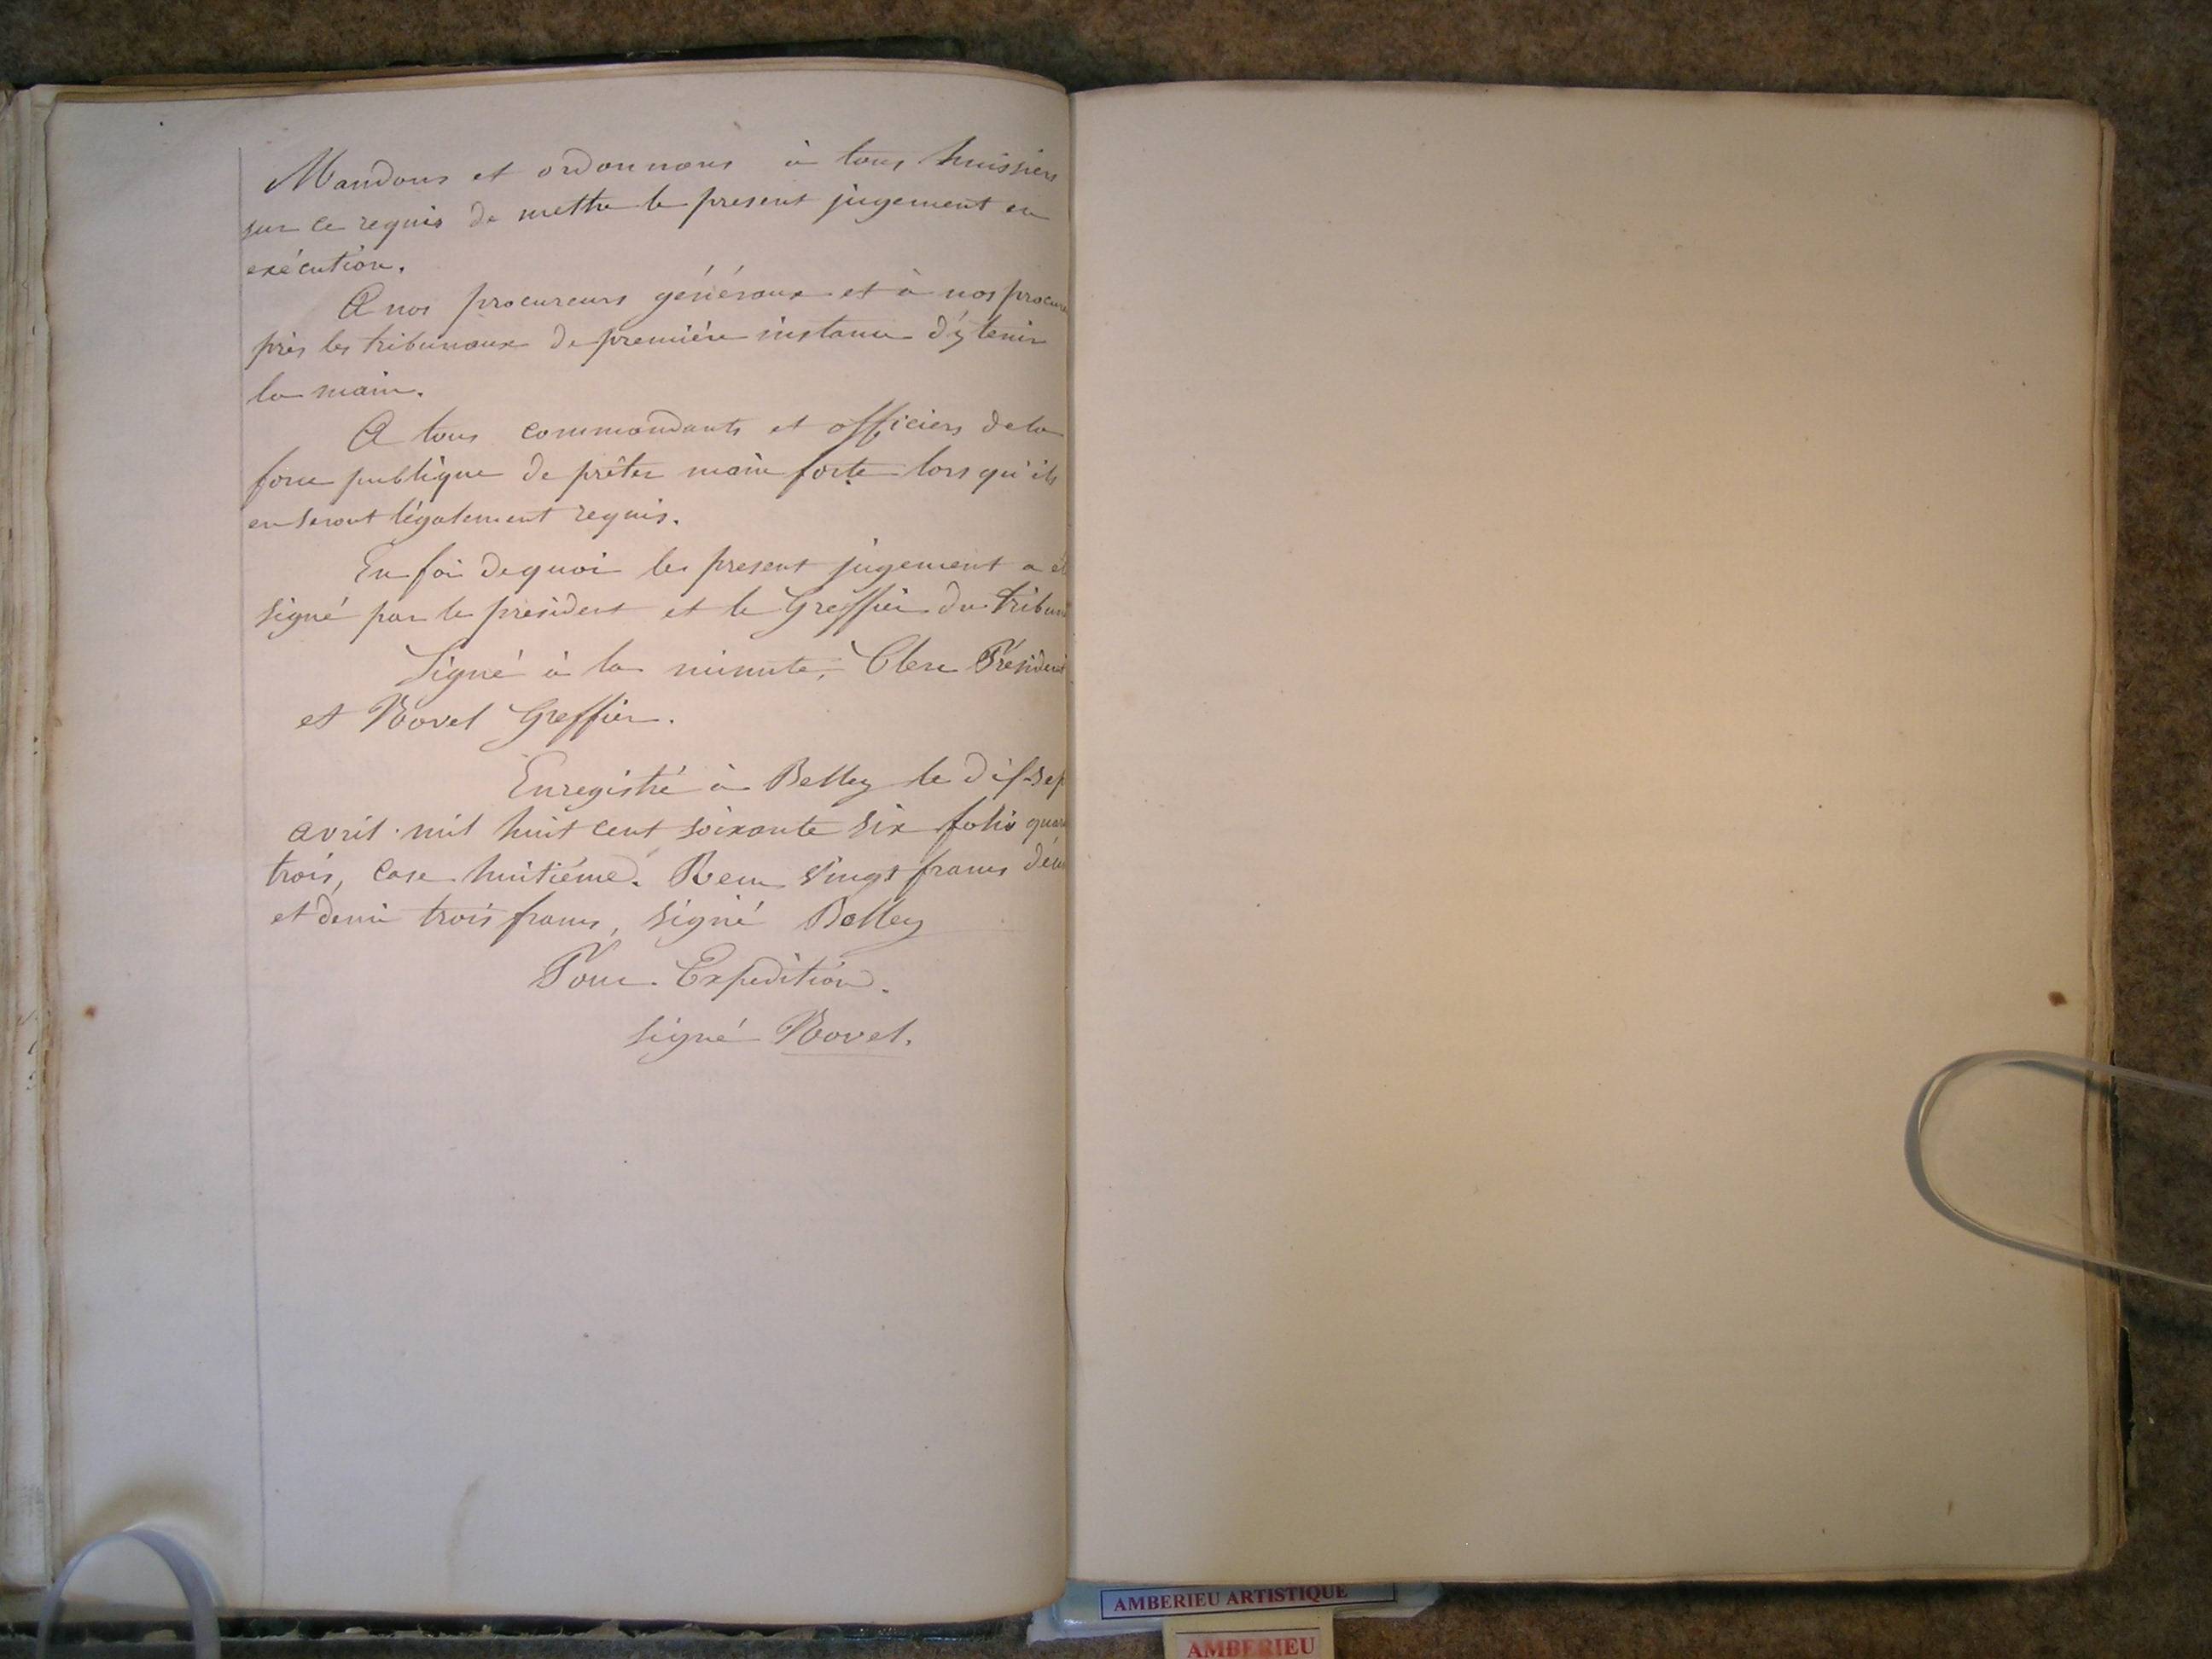 Mandons et ordonnons à tous huissiers
sur ce requis de mettre le present jugement en
exécution.
A nos procureurs généraux et à nos procure
près les tribunaux de première instance d'y tenir
la main.
A tous commandants et officiers de la
force publique de prêter main forte lors qu'ils
en seront légalement requis.
En foi de quoi le present jugement a été
signé par le président et le Greffier du tribun
Signé à la minute, Clerc Président
et Rovel Greffier.
Enregistré à Belley le dif-sep
avril mil huit cent soixante six folio quar
trois, Case huitième. Recu vingt francs déci
et demi trois francs, signé Belley
Pour Expedition.
Signé Rovel.
AMBERIEU ARTISTIQUE
AMBERIEU